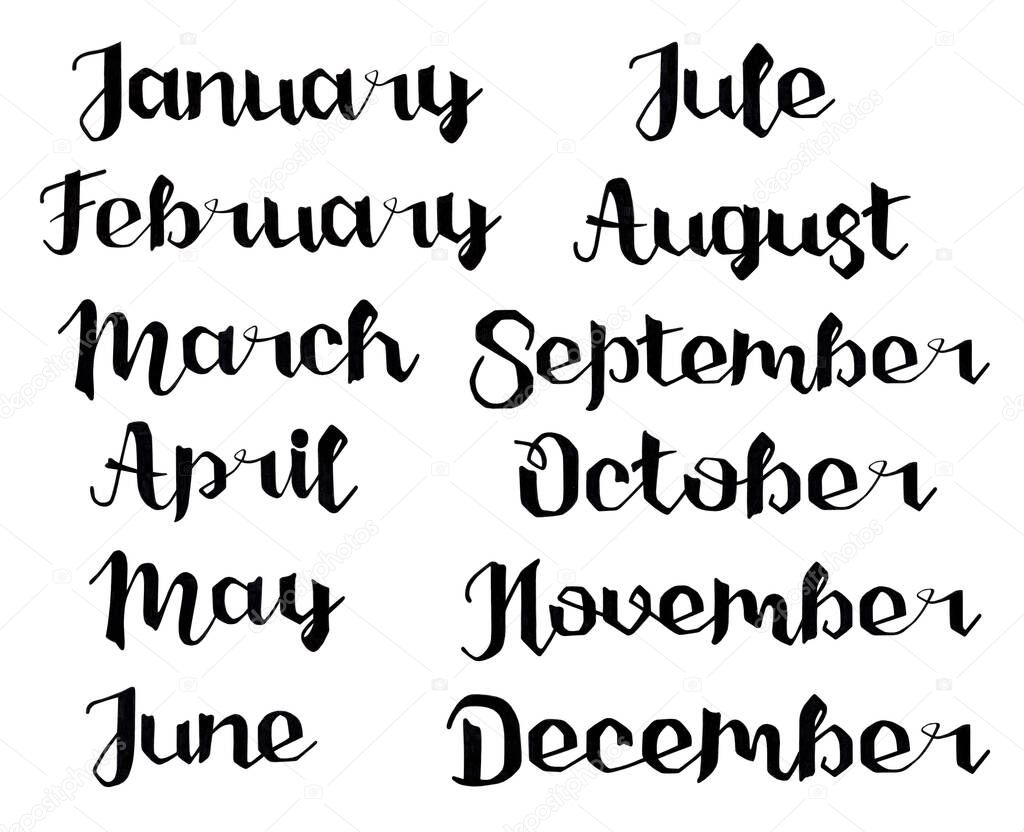 January
February
March
April
May
June
Jule
August
September
October
November
December
depositphotos